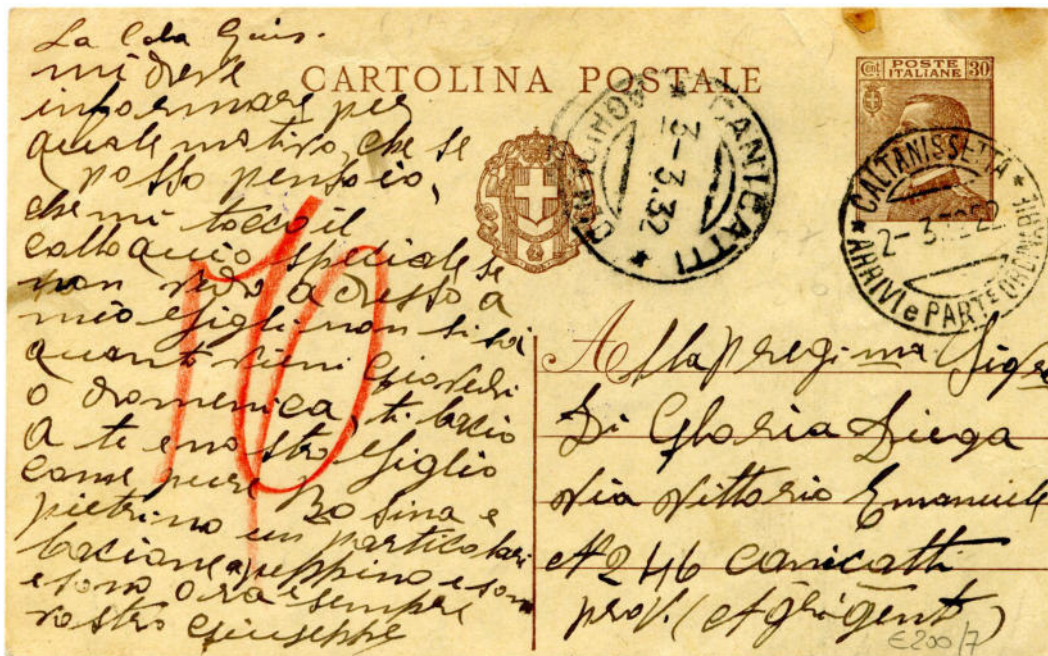 La Cola Gius.
mi deve
informare per
quale motivo, che se
posso penso io,
che mi tocco il
colloquio speciale se
non vedo adesso a
mio figli non si sà
quanto vieni Giovedi
o domenica, ti bacio
a te e nostro figlio
come pure Rosina e
pietrino un particolari
bacione a peppino e sono
e sono ora e sempre
vostro Giuseppe
CARTOLINA POSTALE
Cent. POSTE ITALIANE 30
CANICATTI
3-3.32
CALTANISSETTA
2-3
ARRIVI e PARTe ORDINARIE
10
Alla pregima Sigra
Di Gloria Diega
Via Vittorio Emanuele
N 246 Canicatti
prov. (Agrigento)
€200/7